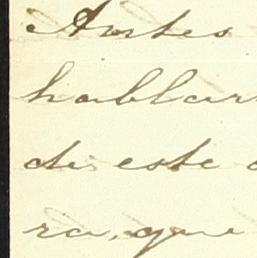 Antes
hablar
de este
ra, que